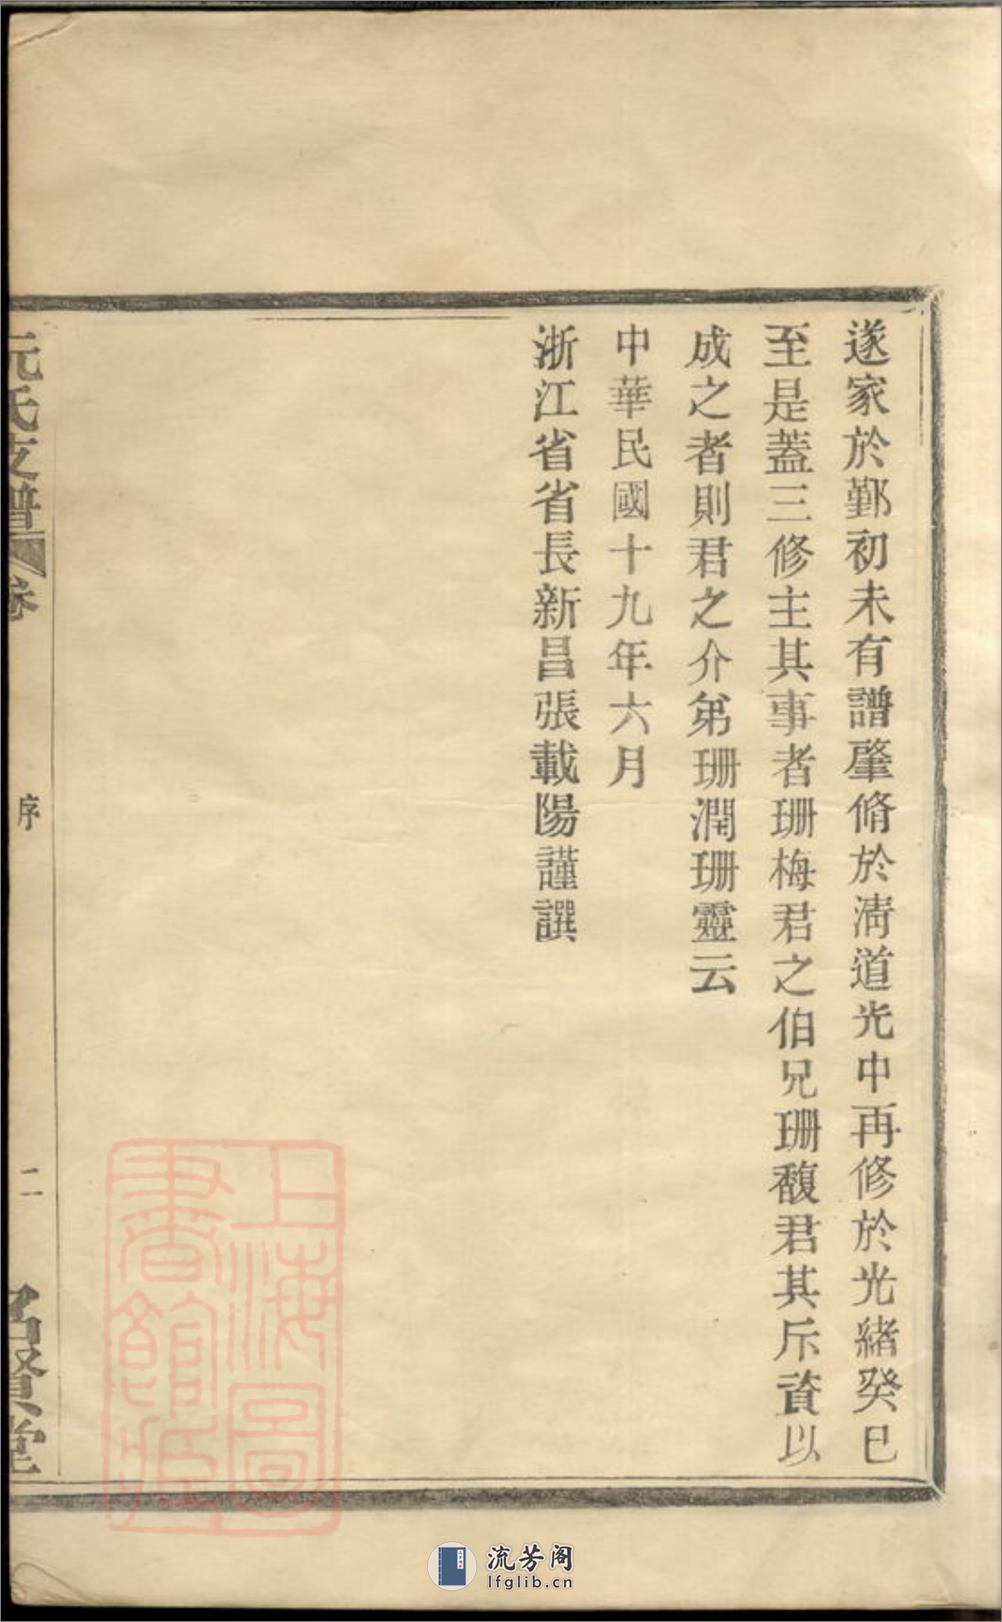 遂家於鄞初未有譜肇脩於清道光中再修於光緒癸巳
至是蓋三修主其事者珊梅君之伯兄珊馥君其斥資以
成之者則君之介弟珊潤珊靈云
中華民國十九年六月
浙江省省長新昌張載陽謹譔
阮氏支譜 卷
序
二
名賢堂
上海圖
書館藏
流芳阁
lfglib.cn